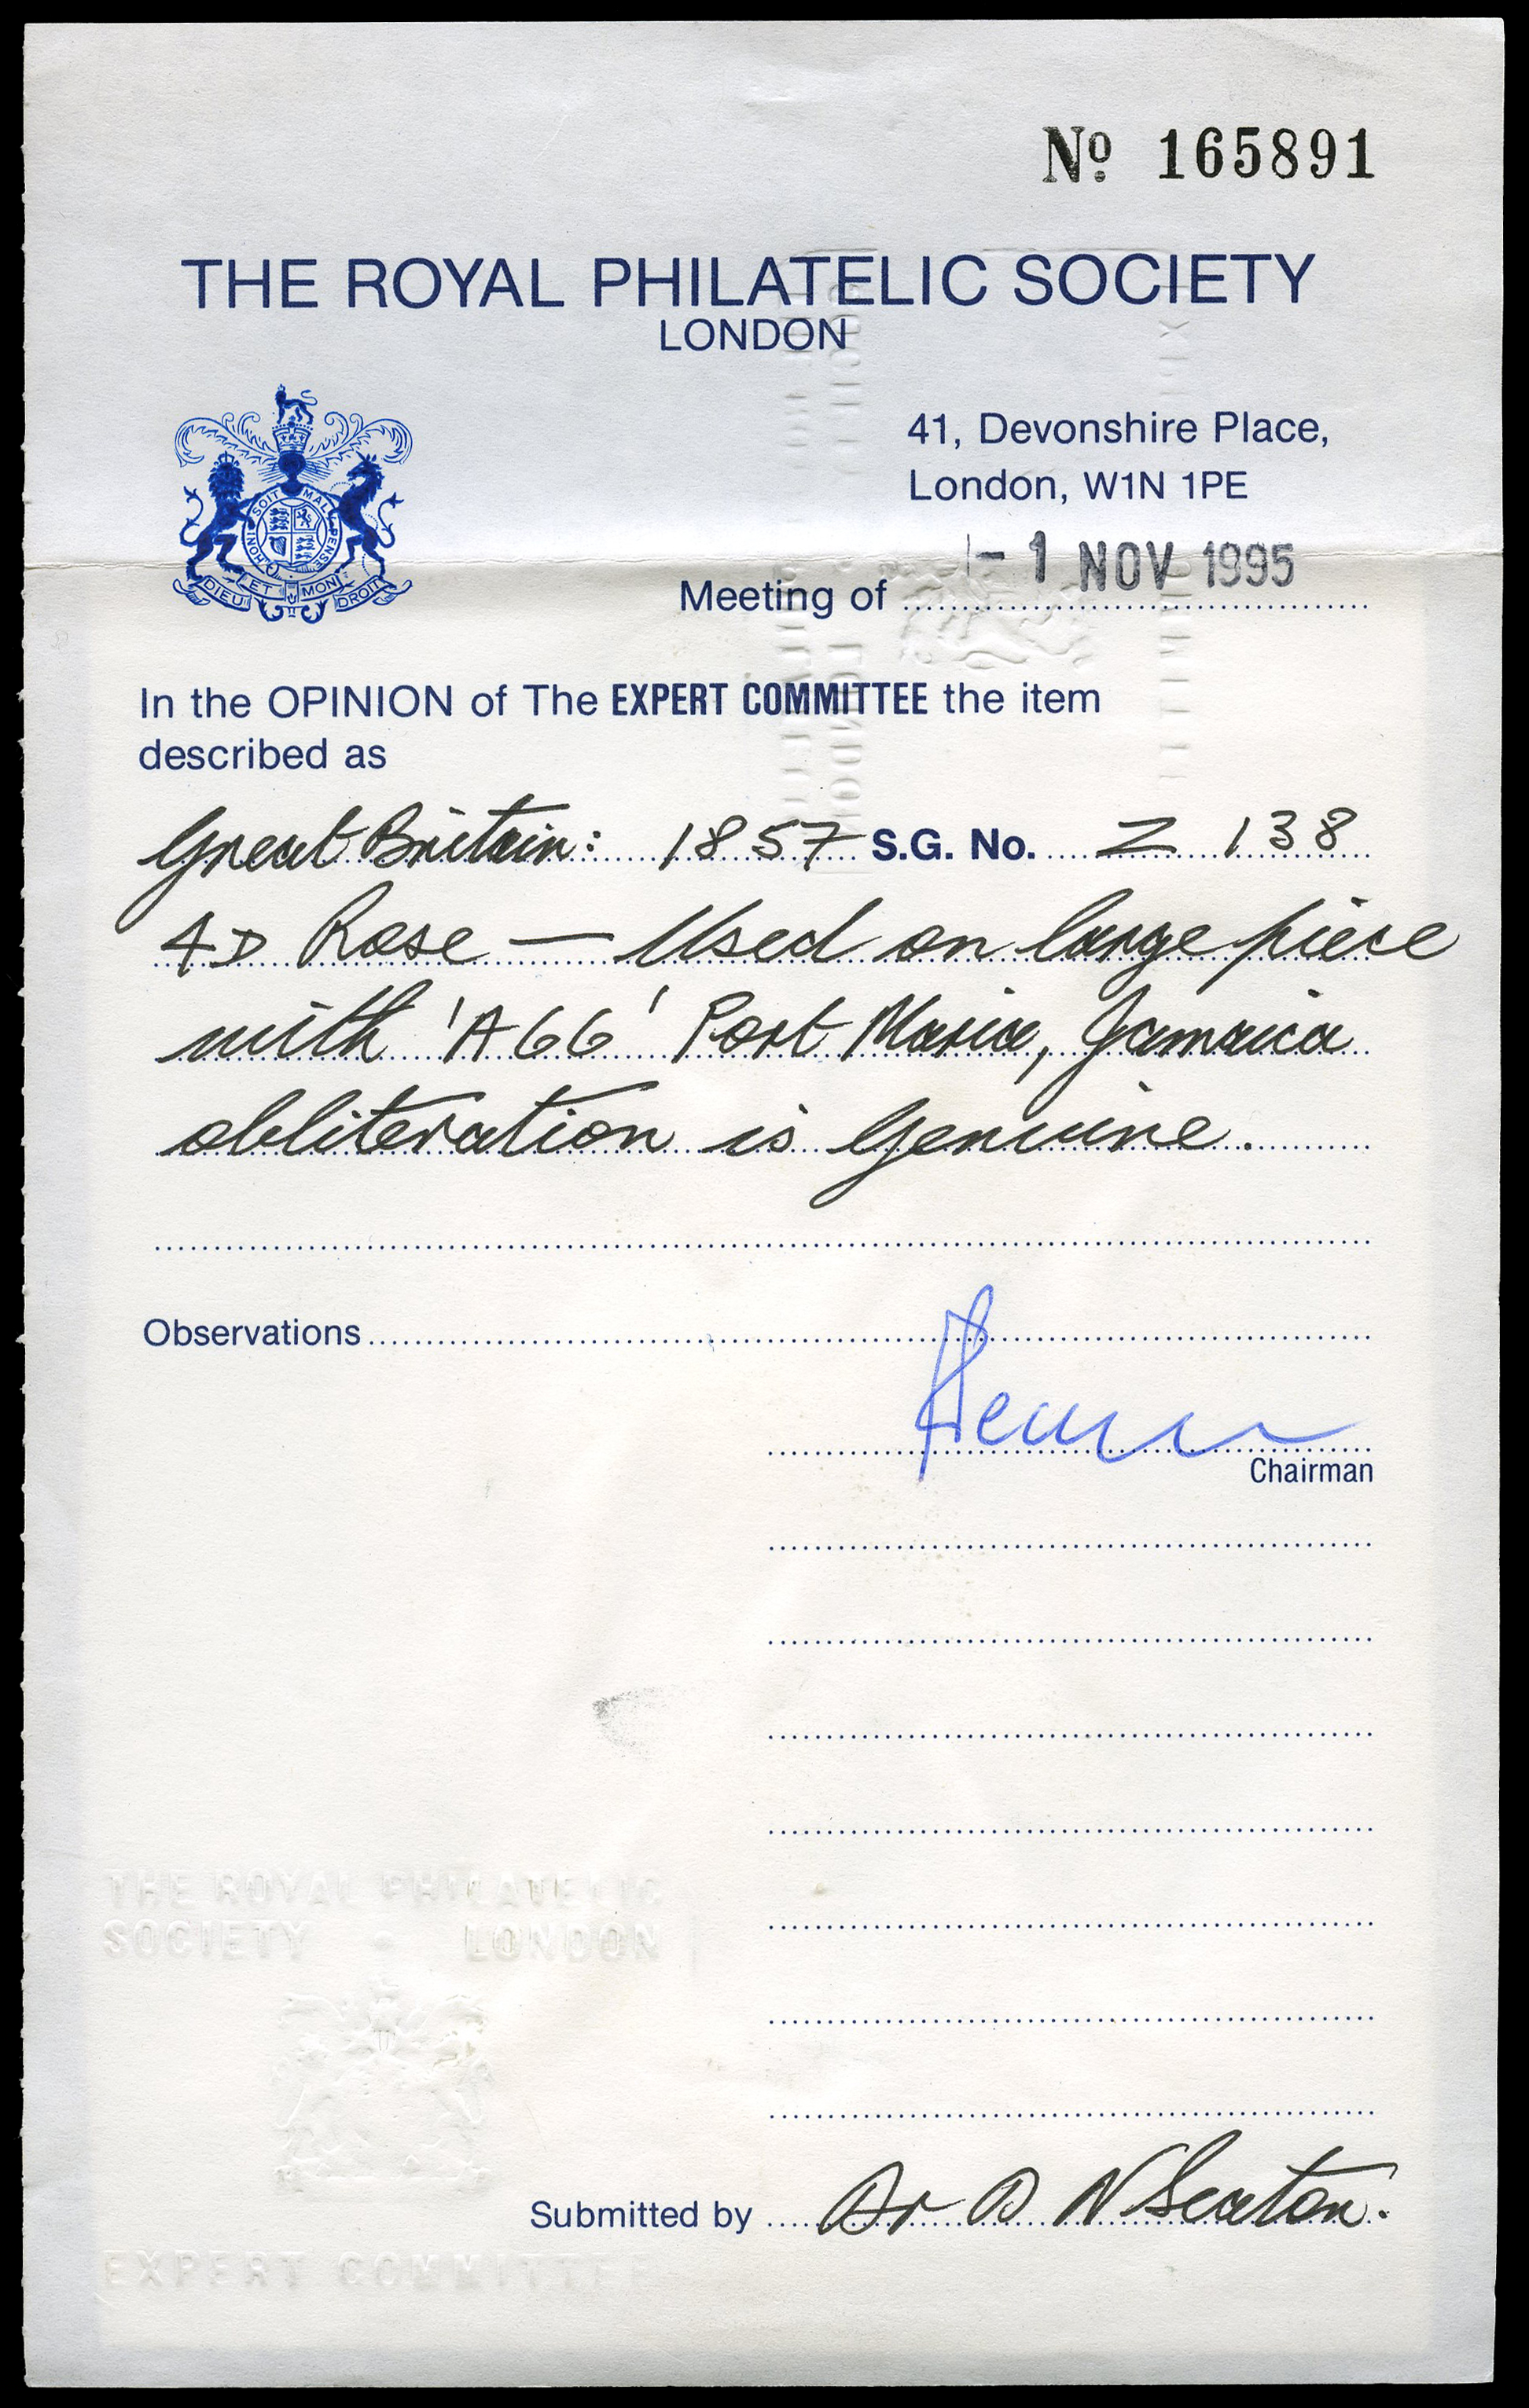 Nº 165891
THE ROYAL PHILATELIC SOCIETY
LONDON
41, Devonshire Place,
London, W1N 1PE
HONI SOIT MAL Y PENSE
DIEU ET MON DROIT
- 1 NOV 1995
Meeting of
In the OPINION of The EXPERT COMMITTEE the item
described as
Great Britain: 1857 S.G. No. Z 138
4D Rose — Used on large piece
with 'A66' Port Maria, Jamaica
obliteration is genuine.
Observations
Chairman
THE ROYAL PHILATELIC
SOCIETY - LONDON
Submitted by Dr D N Seaton.
EXPERT COMMITTEE